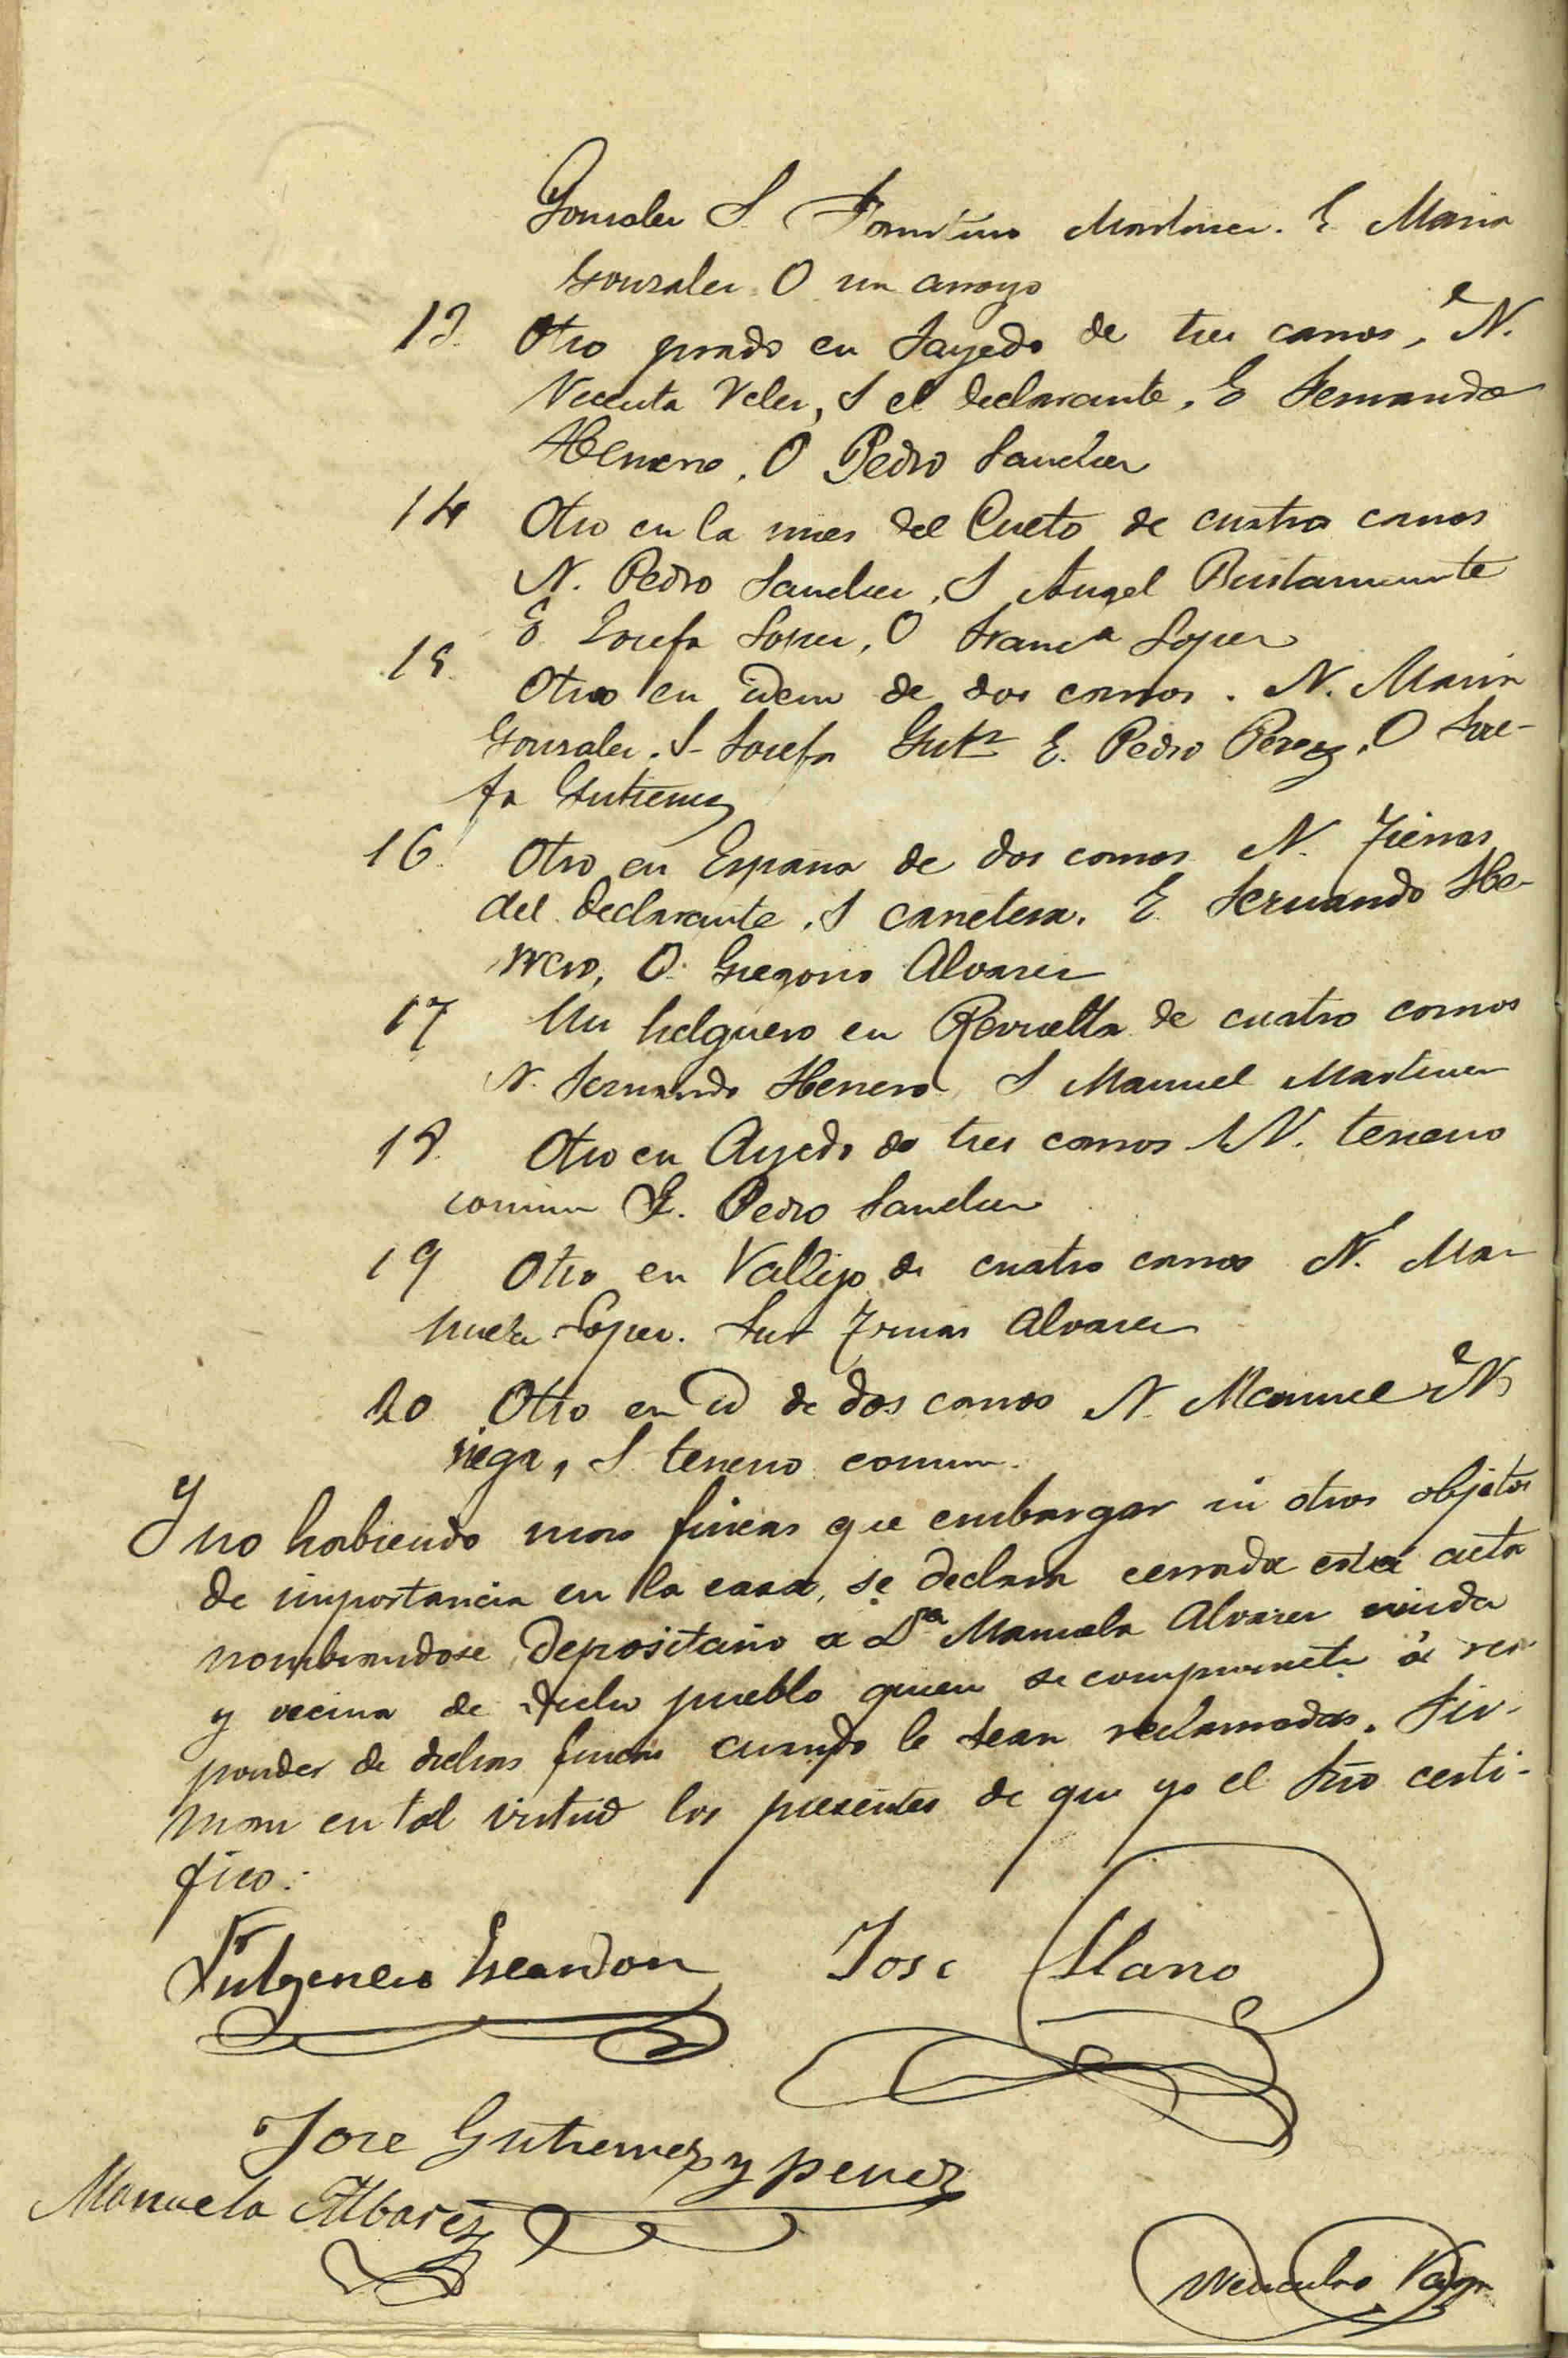 Gonzalez S. Faustino Martinez. E. Maria
Gonzalez O un arroyo
13. Otro prado en Sayedo de tres carros, N.
Vicenta Velez, S el declarante, E Fernando
Herrero, O Pedro Sanchez
14 Otro en la mies del Cueto de cuatro carros
N. Pedro Sanchez, S Angel Bustamante
E Josefa Lopez, O Franca Lopez
15. Otro en idem de dos carros. N. Maria
Gonzalez. S- Josefa Gutz E. Pedro Perez, O Jose-
fa Gutierrez
16. Otro en España de dos carros N. Tierras
del declarante, S carretera. E Fernando He-
rrero, O. Gregorio Alvarez
17 Un helguero en Revuelta de cuatro carros
N. Fernando Herrero, S Manuel Martinez
18. Otro en Ayedo de tres carros N. terreno
comun E. Pedro Sanchez
19 Otro en Vallejo de cuatro carros N. Ma-
nuela Lopez. Sur Alvarez
20 Otro en id de dos carros N. Manuel No
riega, S terreno comun.
Y no habiendo mas fincas que embargar ni otros objetos
de importancia en la casa, se declara cerrada esta acta
nombrandose depositario a Dª Manuela Alvarez viuda
y vecina de dicho pueblo quien se compromete á res-
ponder de dichas fincas cuando le sean reclamadas. Fir-
man en tal virtud los presentes de que yo el Srio certi-
fico.
Fulgencio Escandon Jose Llano
Jose Gutierrez y perez
Manuela Albarez
Wenceslao